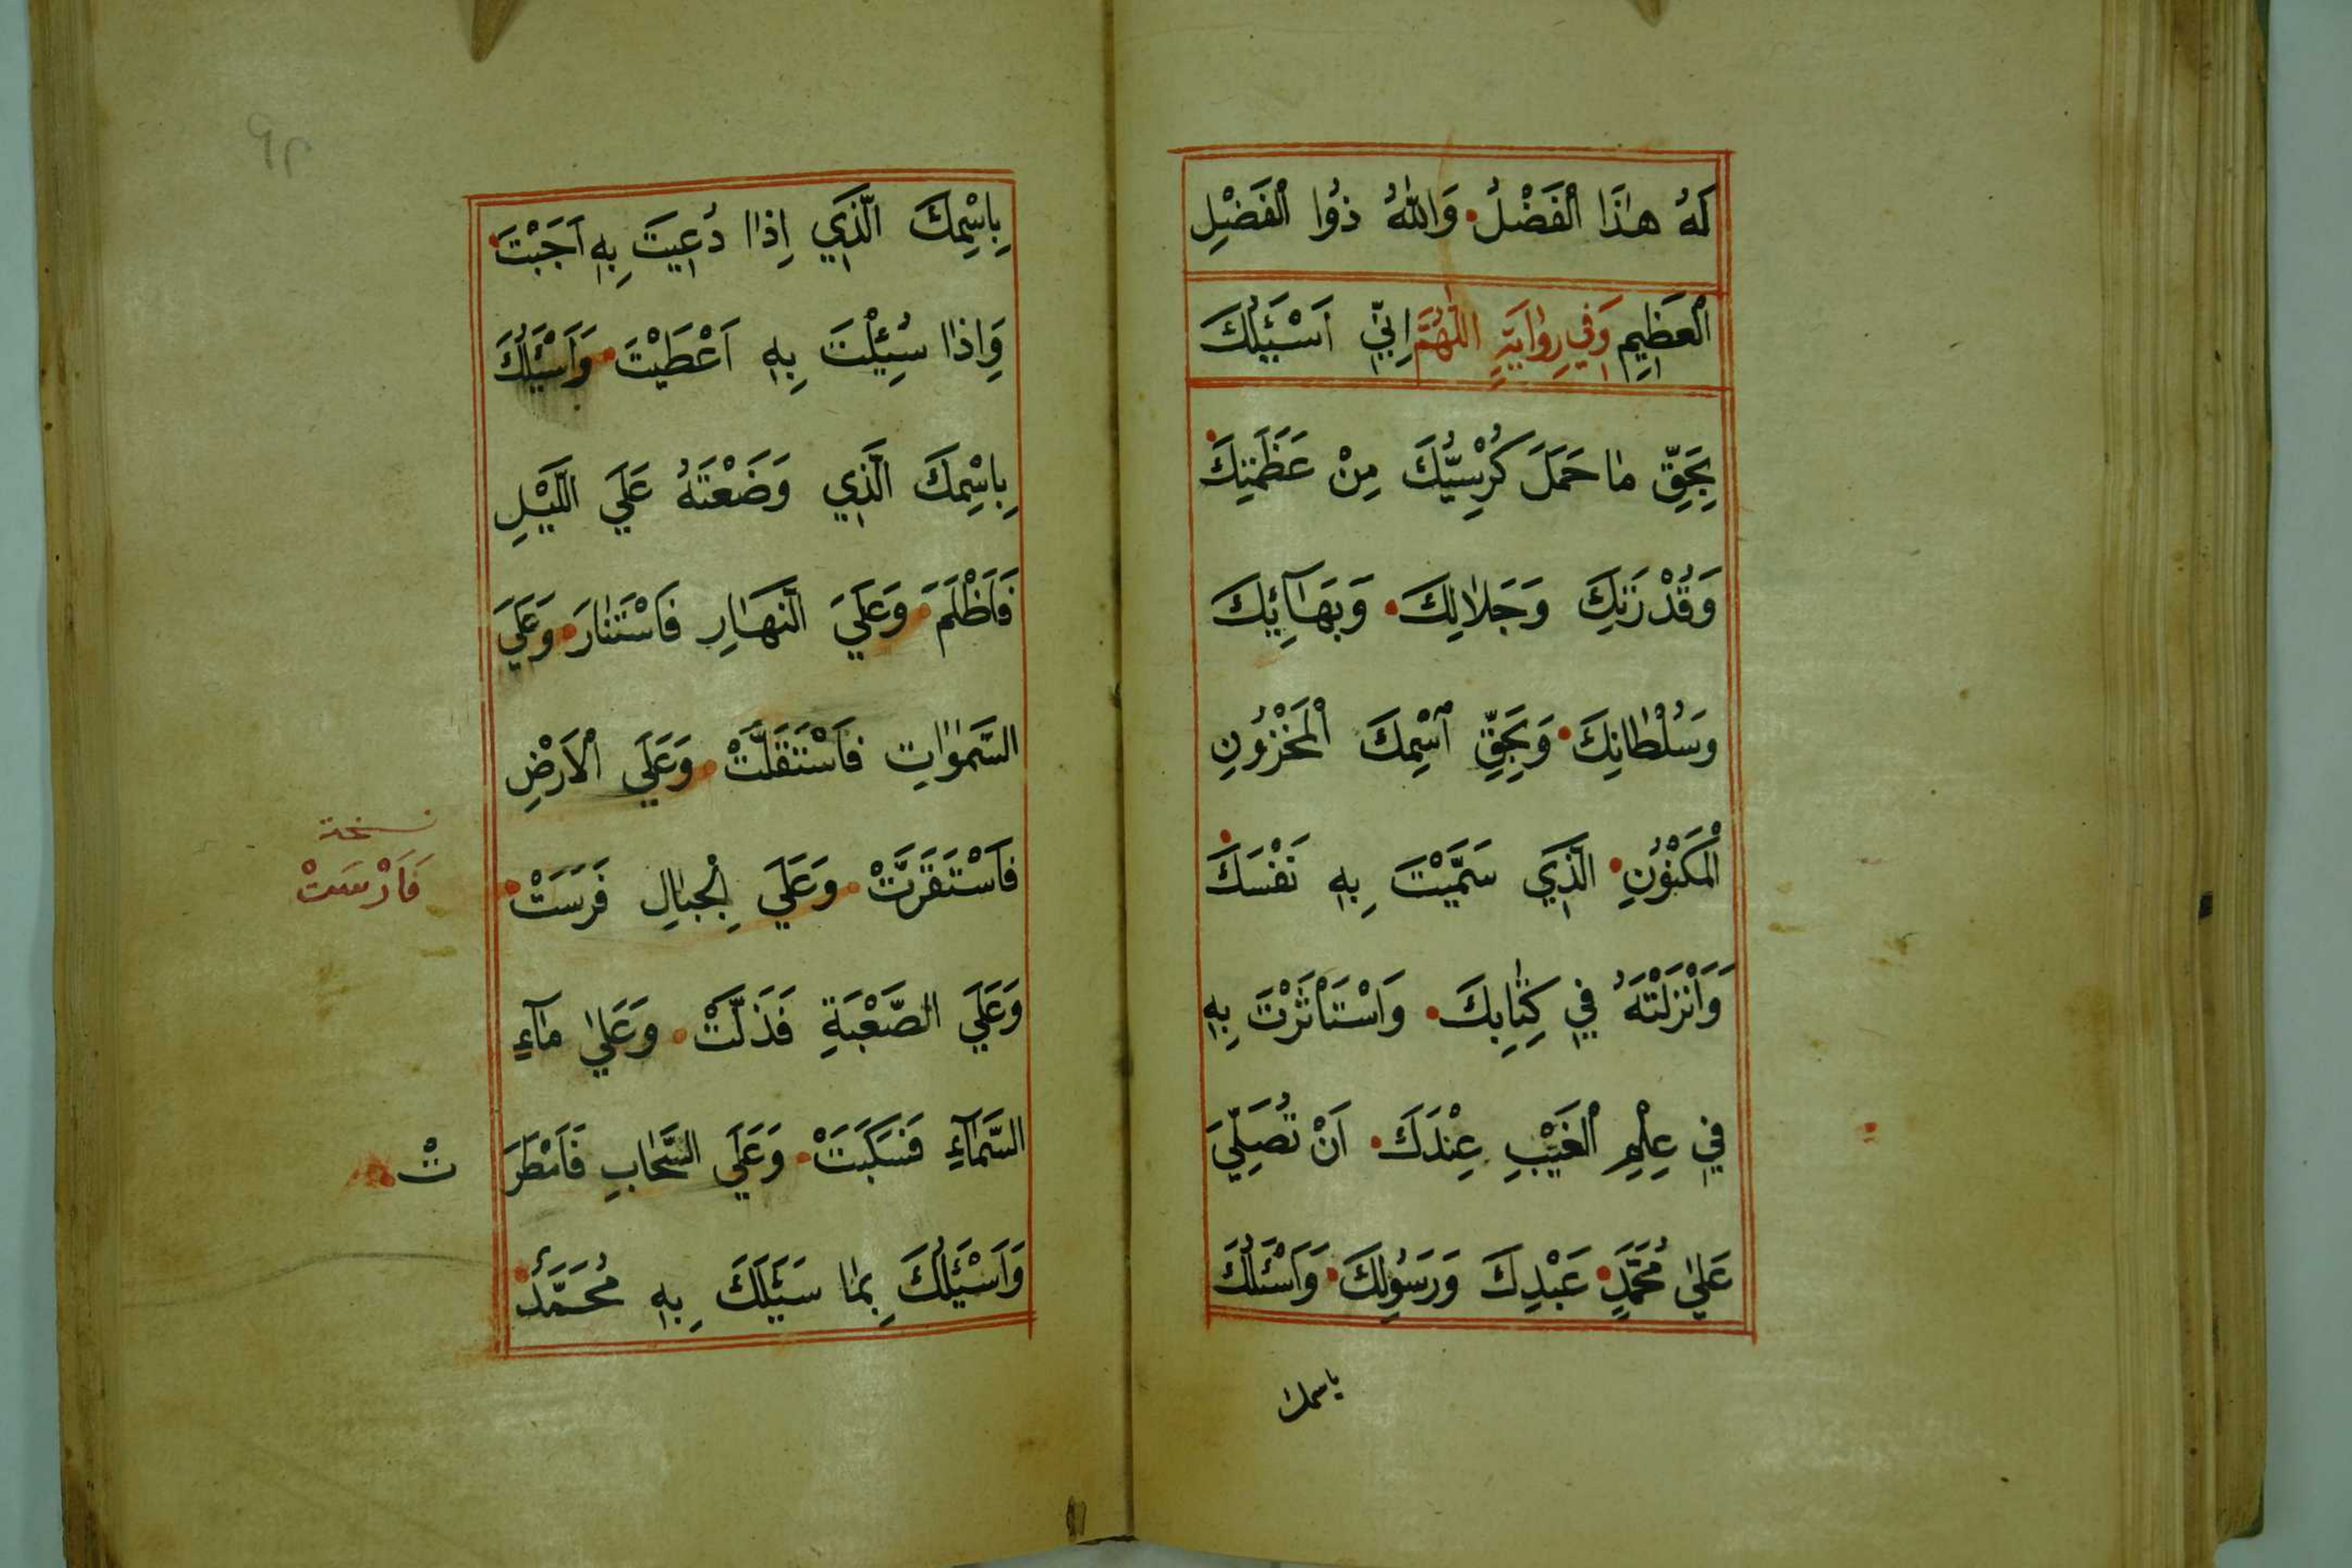 لَهُ هٰذَا الْفَضْلُ وَاللّٰهُ ذُوا الْفَضْلِ
الْعَظِيمِ وَفِي رِوٰايَةٍ اَللّٰهُمَّ اِنِّي اَسْئَلُكَ
بِحَقِّ مٰا حَمَلَ كُرْسِيُّكَ مِنْ عَظَمَتِكَ
وَقُدْرَتِكَ وَجَلٰالِكَ وَبَهٰآئِكَ
وَسُلْطٰانِكَ وَبِحَقِّ اسْمِكَ الْمَخْزُونِ
الْمَكْنُونِ الَّذِي سَمَّيْتَ بِهِ نَفْسَكَ
وَاَنْزَلْتَهُ فِي كِتٰابِكَ وَاسْتَاْثَرْتَ بِهِ
فِي عِلْمِ الْغَيْبِ عِنْدَكَ اَنْ تُصَلِّيَ
عَلٰي مُحَمَّدٍ عَبْدِكَ وَرَسُولِكَ وَاَسْئَلُكَ
باسمك
بِاسْمِكَ الَّذِي اِذٰا دُعِيتَ بِهِ اَجَبْتَ
وَاِذٰا سُئِلْتَ بِهِ اَعْطَيْتَ وَاَسْئَلُكَ
بِاسْمِكَ الَّذِي وَضَعْتَهُ عَلَي اللَّيْلِ
فَاَظْلَمَ وَعَلَيَ النَّهٰارِ فَاسْتَنٰارَ وَعَلَيَ
السَّمٰوٰاتِ فَاسْتَقَلَّتْ وَعَلَي الْاَرْضِ
فَاسْتَقَرَّتْ وَعَلَي الْجِبٰالِ فَرَسَتْ
نسخة
فَاَرْسَتْ
وَعَلَي الصَّعْبَةِ فَذَلَّتْ وَعَلٰي مٰآءِ
السَّمٰآءِ فَسَكَبَتْ وَعَلَي السَّحٰابِ فَاَمْطَرَ تْ
وَاَسْئَلُكَ بِمٰا سَئَلَكَ بِهِ مُحَمَّدٌ